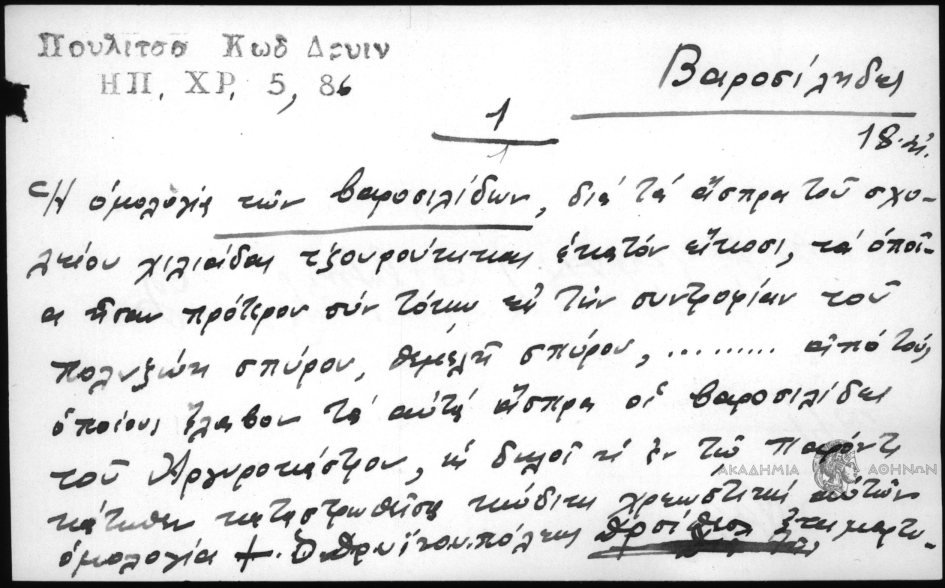 Πουλιτσα Κωδ Δρυιν
ΗΠ. ΧΡ. 5, 86
Βαροσίληδες
1
1
18. αἰ.
Ἡ ὁμολογία τῶν βαροσιλίδων, διά τά ἄσπρα τοῦ σχο-
λείου χιλιάδας τζουρούτικας ἑκατόν εἴκοσι, τά ὁποῖ-
α ἦσαν πρότερον σύν τόκῳ εἰς τήν συντροφίαν τοῦ
πολυζώη σπύρου, θεμελῆ σπύρου, ......... ἀπό τούς
ὁποίους ἔλαβον τά αὐτά ἄσπρα οἱ βαροσιλίδες
τοῦ Ἀργυροκάστρου, ὡς δηλοῖ ἡ ἐν τῷ παρόντι
κάτωθεν καταστρωθεῖσα κώδικι χρεωστική αὐτῶν
ὁμολογία + Ὁ Δρυϊνουπόλεως ἐπιμαρτυ-
ΑΚΑΔΗΜΙΑ ΑΘΗΝΩΝ